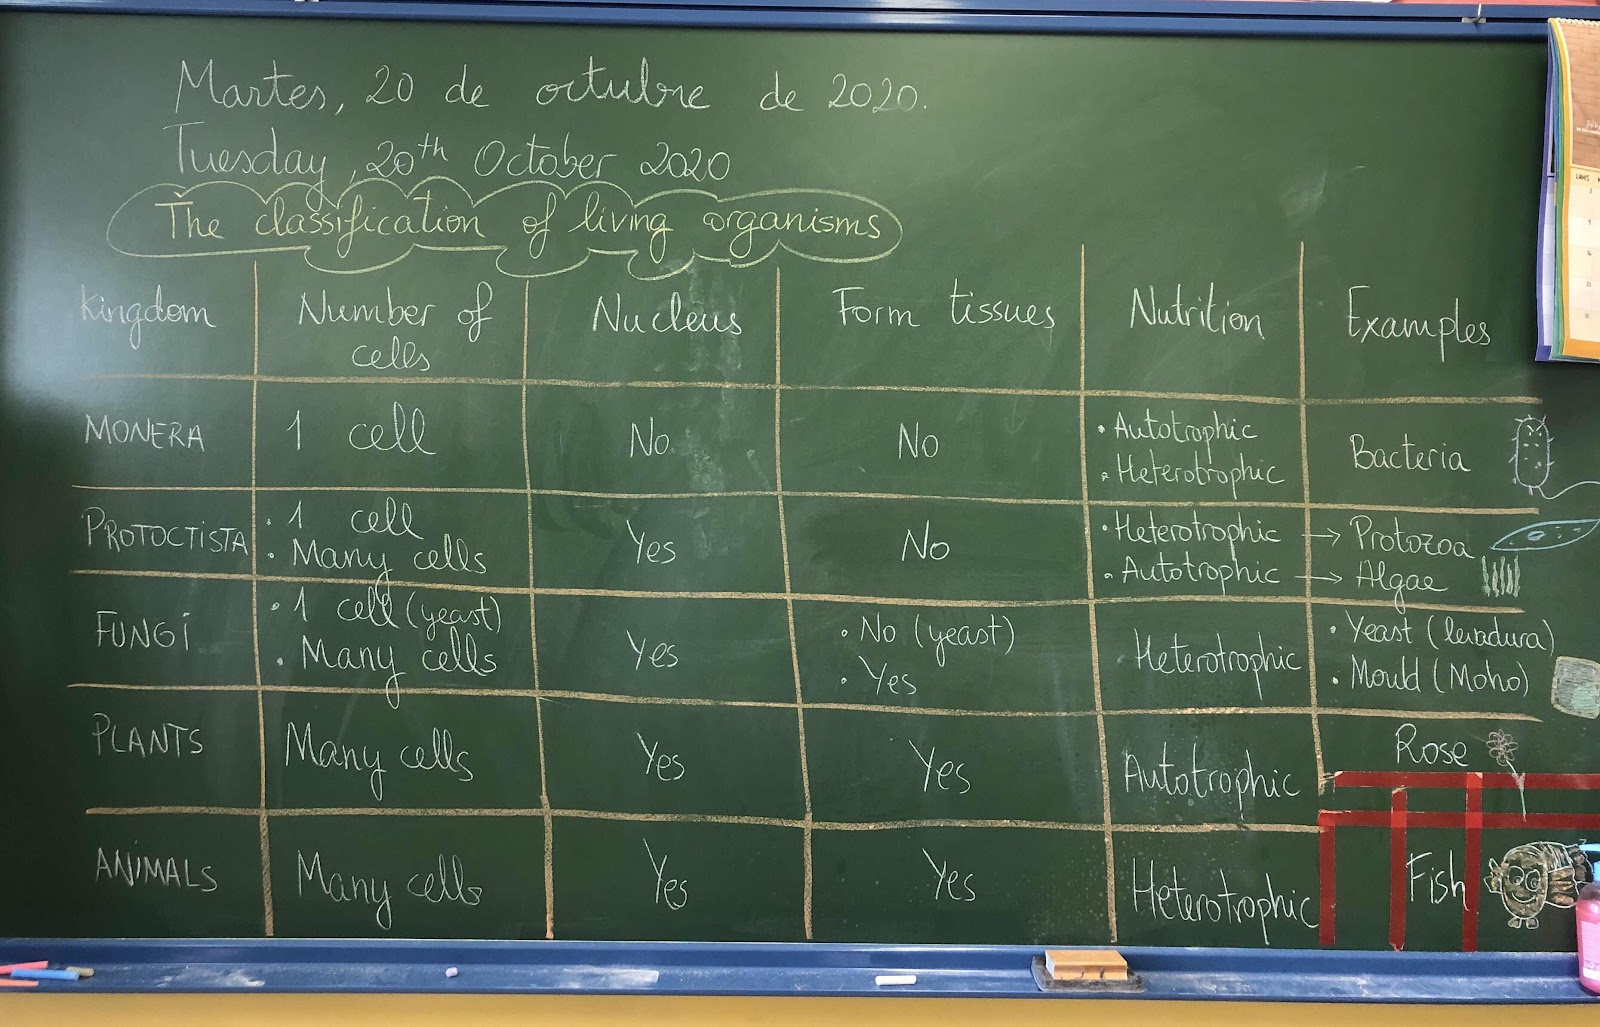 Martes, 20 de octubre de 2020.
Tuesday, 20th October 2020
The classification of living organisms
Kingdom
Number of
cells
Nucleus
Form tissues
Nutrition
Examples
MONERA
1 cell
No
No
• Autotrophic
• Heterotrophic
Bacteria
PROTOCTISTA
• 1 cell
• Many cells
Yes
No
• Heterotrophic → Protozoa
• Autotrophic → Algae
FUNGI
• 1 cell (yeast)
• Many cells
Yes
• No (yeast)
• Yes
Heterotrophic
• Yeast (levadura)
• Mould (Moho)
PLANTS
Many cells
Yes
Yes
Autotrophic
Rose
ANIMALS
Many cells
Yes
Yes
Heterotrophic
Fish